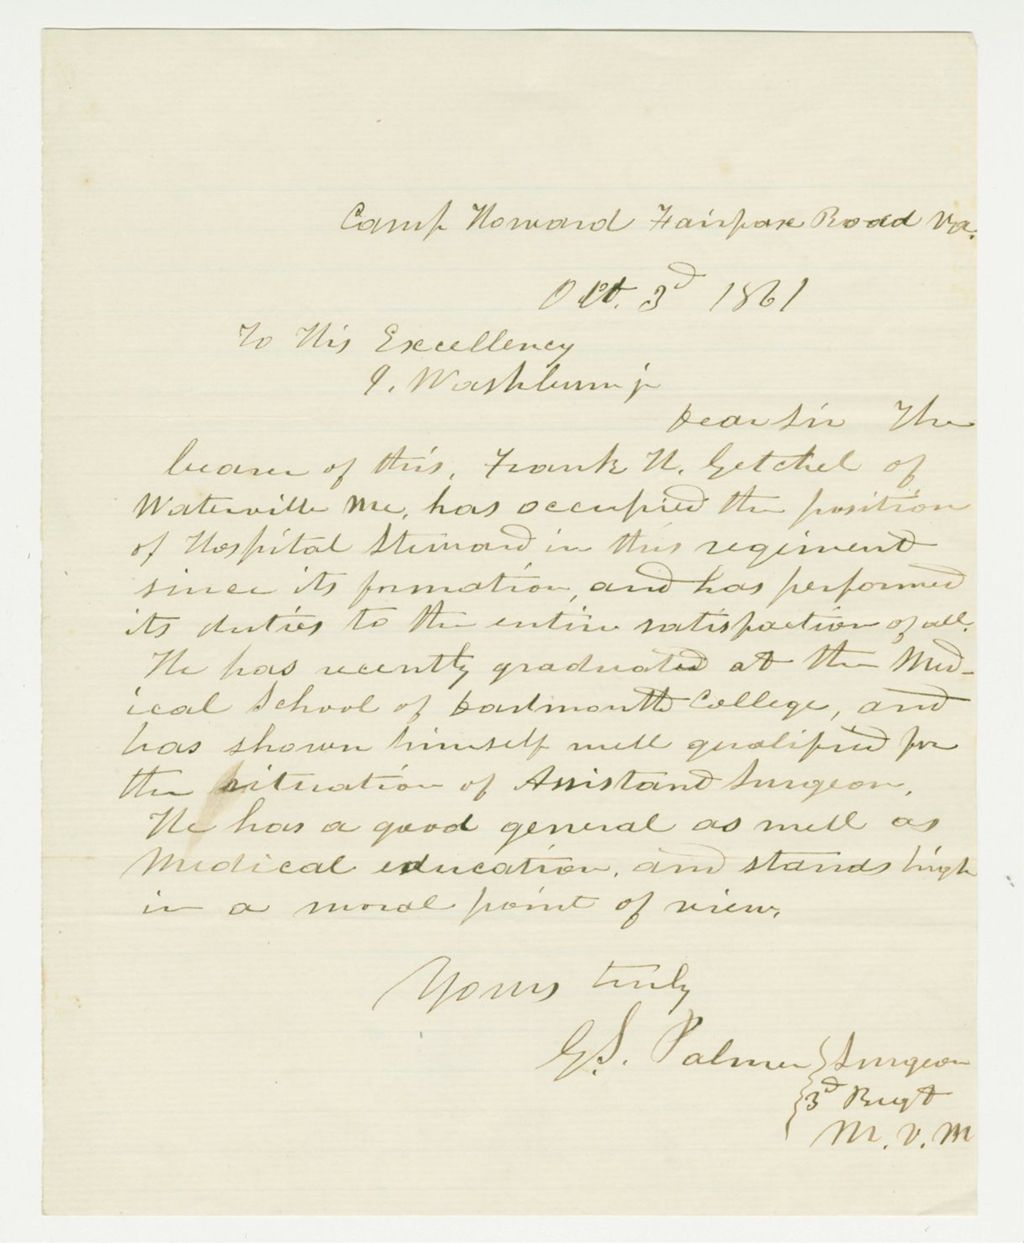 Camp Howard Fairfax Road Va.
Oct. 3d 1861
To His Excellency
I. Washburn jr
Dear Sir The
bearer of this, Frank H. Getchel of
Waterville Me, has occupied the position
of Hospital Steward in this regiment
since its formation, and has performed
its duties to the entire satisfaction of all.
He has recently graduated at the Med-
ical School of Dartmouth College, and
has shown himself well qualified for
the situation of Assistant Surgeon.
He has a good general as well as
Medical education, and stands high
in a moral point of view.
Yours truly
G.S. Palmer Surgeon
3d Regt
M.V.M